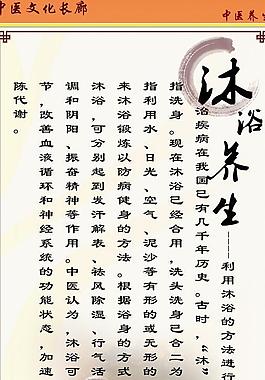 中医文化长廊
中医养生
沐浴养生
——利用沐浴的方法进行
治疾病在我国已有几千年历史。古时，“沐”
指洗身。现在沐浴已经合用，洗头洗身已合二为
指利用水、日光、空气、泥沙等有形的或无形的
来沐浴锻炼以防病健身的方法。根据浴身的方式
沐浴，可分别起到发汗解表、祛风除湿、行气活
调和阴阳、振奋精神等作用。中医认为，沐浴可
节，改善血液循环和神经系统的功能状态，加速
陈代谢。